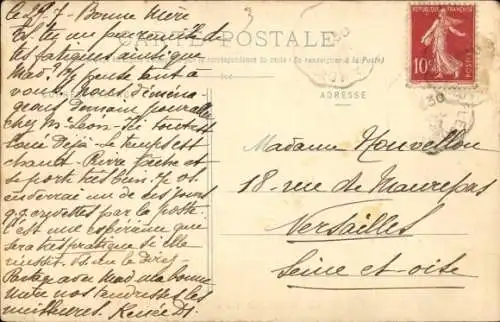 le 29.7 Bonne Mère
Es tu un peu remise de
tes fatigues ainsi que
Mad. Je pense tant à
vous. Nous déména-
geons demain pour aller
chez Mr Léon. Ici tout est
loué Déjà. Le temps est
chaud. Pierre tâche et
se porte très bien. Je vs
enverrai un de ces jours
q.q. crevettes par la poste.
C'est une expérience que
sera très pratique si elle
réussit. vs. me le direz
Partage avec Mad. ma bonne
mère nos tendresses les
meilleures. Renée D.
CARTE POSTALE
la correspondance du recto (Se renseigner à la Poste)
ADRESSE
RÉPUBLIQUE FRANÇAISE
10c
POSTES
3
Madame Nouvellon
18 rue de Maurepas
Versailles
Seine et oise